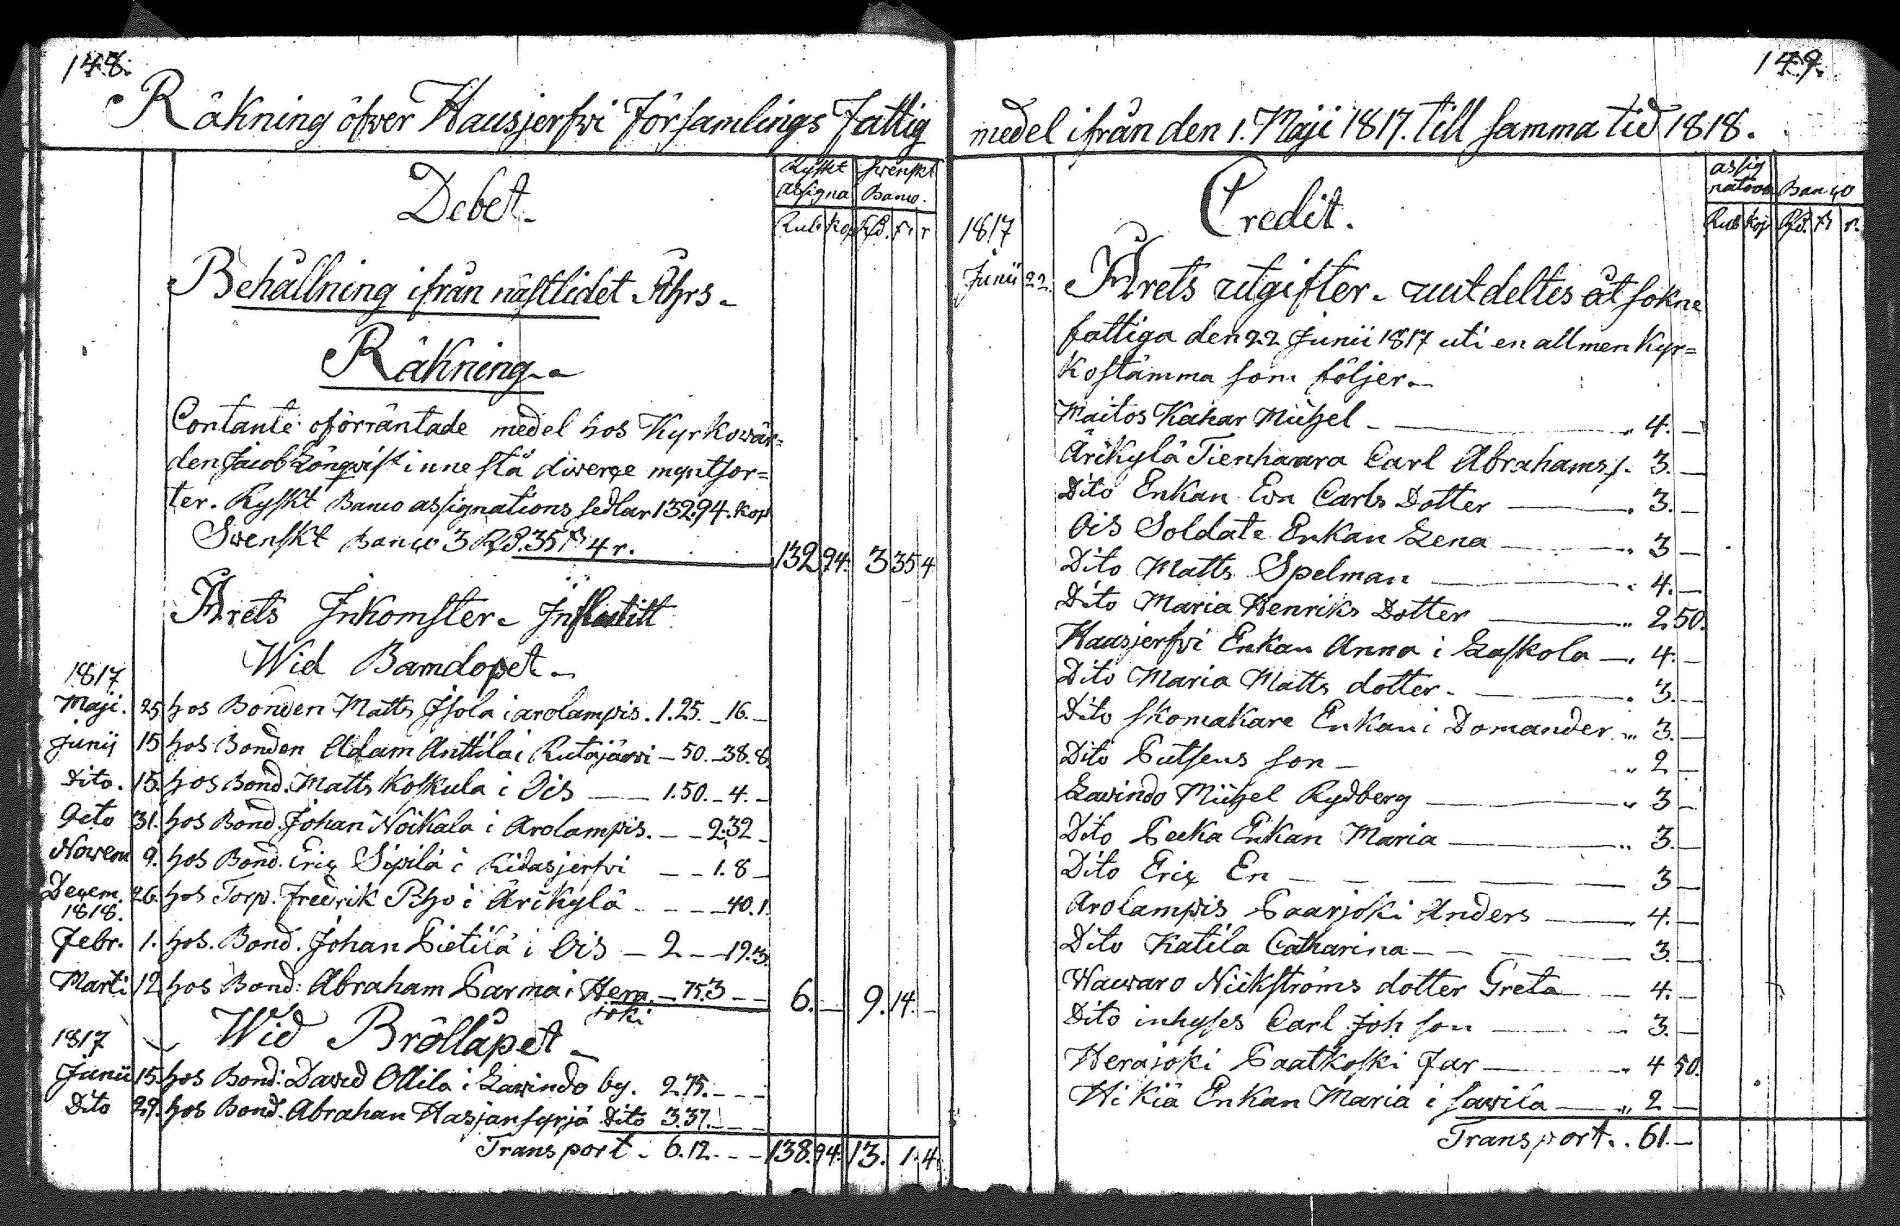 148.
Räkning öfver Hausjerfvi Församlings Fattig
Ryskt Swenskt
Assigna Banco.
Debet.
Rub Kop Rd. sk r
Behållning ifrån nästlidet Åhrs
Räkning
Contante oförräntade medel hos Kyrkowär=
den Jacob Lönqvist innestå diverse myntsor=
ter. Ryskt Banco assignations sedlar 132.94. kop
Swenskt Banco 3 Rd. 35 ß 4 r. 132 94. 3 35 4
Årets Inkomster. Influtit
Wid Barndopet
1817
Maji. 25 hos Bonden Matts Isola i arolampis. 1.25. 16.
Junij 15 hos Bonden Adam Anttila i Rutajärwi 50. 38.8.
Dito. 15. hos Bond. Matts Koskula i Ois 1.50. 4.
Octo 31. hos Bond. Johan Noikala i Arolampis. 2.32
Novem 9. hos Bond. Eric Sipilä i Ridasjerfvi 1.8
Decem. 26. hos Torp. Fredrik Piho i Arikylä 40.1.
1818.
Febr. 1. hos. Bond. Johan Pietilä i Ois 2 19.3.
Marti 12 hos Bond. Abraham Parma i Hera 75. 3 6. 9. 14.
joki
Wid Bröllåpet
1817
Junii 15. hos Bond: David Ollila i Lavindo by. 2.75.
Dito 29. hos Bond. Abrahan Hasjansyrjä Dito 3.37.
Transport 6.12. 138. 94. 13. 1. 4.
149.
medel ifrån den 1. Maji 1817. till samma tid 1818.
assig
nation Banco
Credit.
Rub Kop Rd. sk r.
1817
Junii 22. Årets utgifter. uutdeltes åt sokne
fattiga den 22 Junii 1817 uti en allmen Kyr=
kostämma som föllier.
Maitos Kahar Mihel 4.
Arikylä Tienhaara Carl Abrahams s. 3.
Dito Enkan Eva Carls Dotter 3.
Ois Soldate Enkan Lena 3
Dito Matts Spelman 4.
Dito Maria Henriks Dotter 2 50.
Hausjerfvi Enkan Anna i Laskola 4.
Dito Maria Matts dotter. 3.
Dito skomakare Enkan i Domander 3.
Dito Putsens son 2
Lavindo Mihel Rydberg 3
Dito Pecka Enkan Maria 3.
Dito Eric En 3
Arolampis Paarjoki Anders 4.
Dito Katila Catharina 3.
Wawaro Nickströms dotter Greta 4.
Dito inhyses Carl Joh son 3.
Herajoki Paatkoski Far 4 50.
Hikiä Enkan Maria i Sawila 2
Transport. 61.